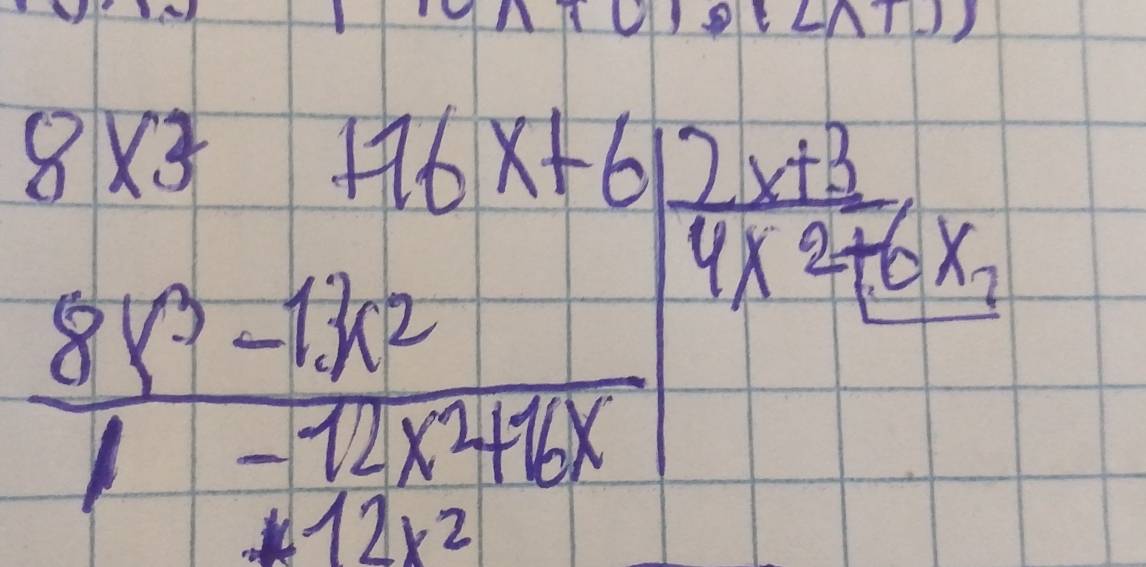 8x3 +16x+6 2x+3
4x2+6x
8x³ -13x2
-12x2+16x
12x2